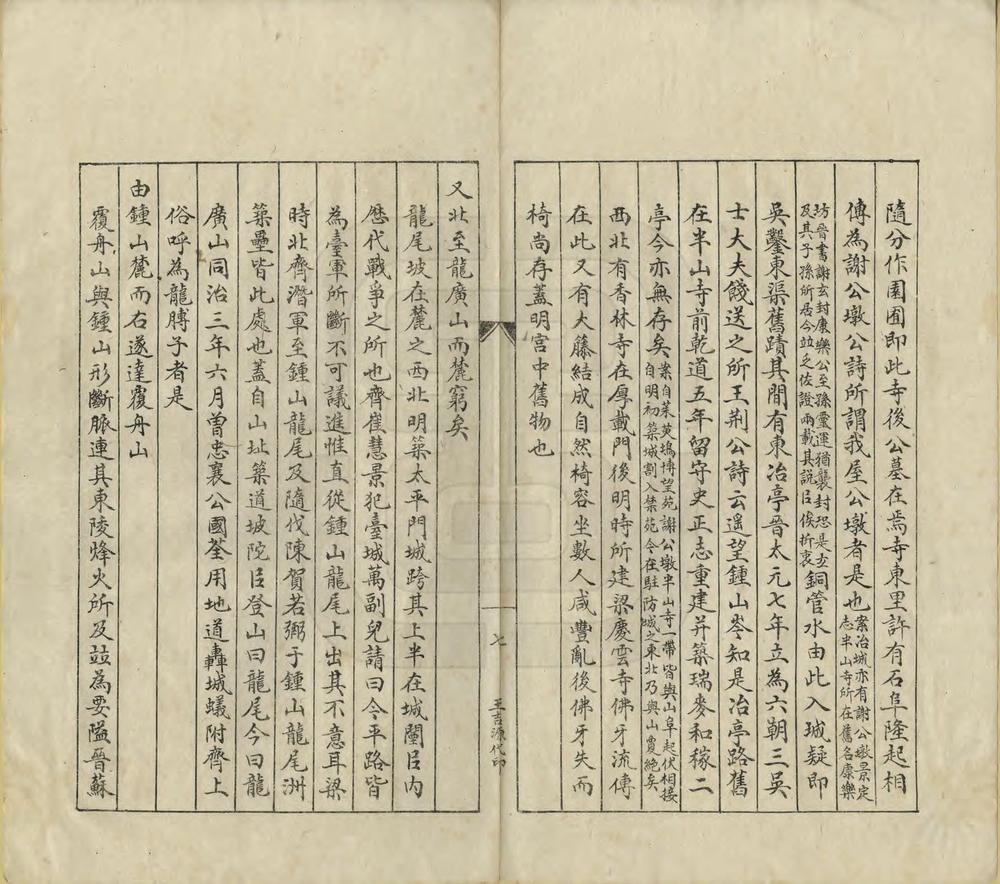 隨分作園囿即此寺後公墓在焉寺東里許有石阜隆起相
傳為謝公墩公詩所謂我屋公墩者是也案冶城亦有謝公墩景定
志半山寺所在舊名康樂
坊晉書謝玄封康樂公至孫靈運猶襲封恐是玄
及其子孫所居今竝之佐證兩載其說㠯俟折衷銅管水由此入城疑即
吳鑿東渠舊蹟其間有東冶亭晉太元七年立為六朝三吳
士大夫餞送之所王荆公詩云遥望鍾山岑知是冶亭路舊
在半山寺前乾道五年留守史正志重建并築瑞麥和稼二
亭今亦無存矣案自茱萸塢博望苑謝公墩半山寺一帶皆與山阜起伏相接
自明初築城割入禁苑今在駐防城之東北乃與山夐絶矣
西北有香林寺在厚載門後明時所建梁慶雲寺佛牙流傳
在此又有大籐結成自然椅容坐數人咸豐亂後佛牙失而
椅尚存蓋明宫中舊物也
七
王吉源代印
又北至龍廣山而麓窮矣
龍尾坡在麓之西北明築太平門城跨其上半在城闉㠯内
歷代戰爭之所也齊崔慧景犯臺城萬副兒請曰今平路皆
為臺軍所斷不可議進惟直從鍾山龍尾上出其不意耳梁
時北齊潛軍至鍾山龍尾及隨伐陳賀若弼于鍾山龍尾洲
築壘皆此處也蓋自山址築道坡陀㠯登山曰龍尾今曰龍
廣山同治三年六月曾忠襄公國荃用地道轟城蟻附齊上
俗呼為龍膊子者是
由鍾山麓而右遂達覆舟山
覆舟山與鍾山形斷脈連其東陵烽火所及竝為要隘晉蘇